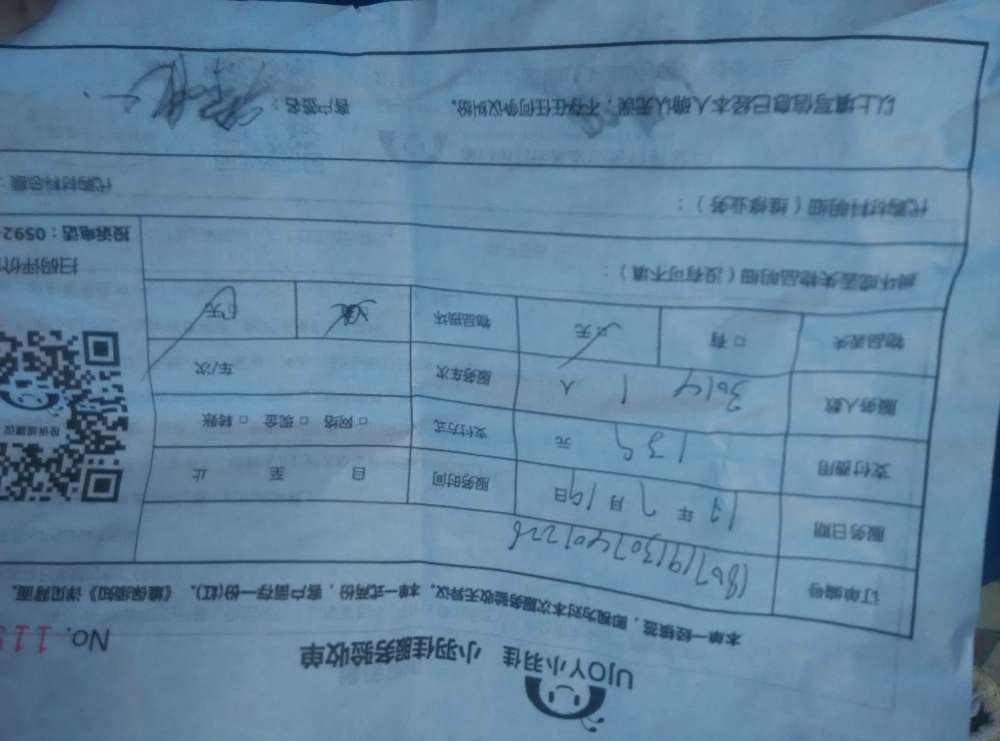 UJOY小羽佳 小羽佳服务验收单
No. 119
本单一经核签，即视为对本次服务验收无异议。本单一式两份，客户留存一份(红)。《维保须知》详见背面。
订单编号
服务日期 17年7月19日 服务时间 自 至 止
支付费用 135元 支付方式 □网络 □现金 □转账
服务人数 1人 服务车次 车/次
物品丢失 □有 □无 物品损坏 □无
投诉或建议
扫码评价
投诉电话：0592
损坏或丢失物品明细（没有可不填）：
代购材料明细（维修业务）： 代购材料总额：
以上填写信息已经本人确认无误，不存在任何争议纠纷。 客户签名：